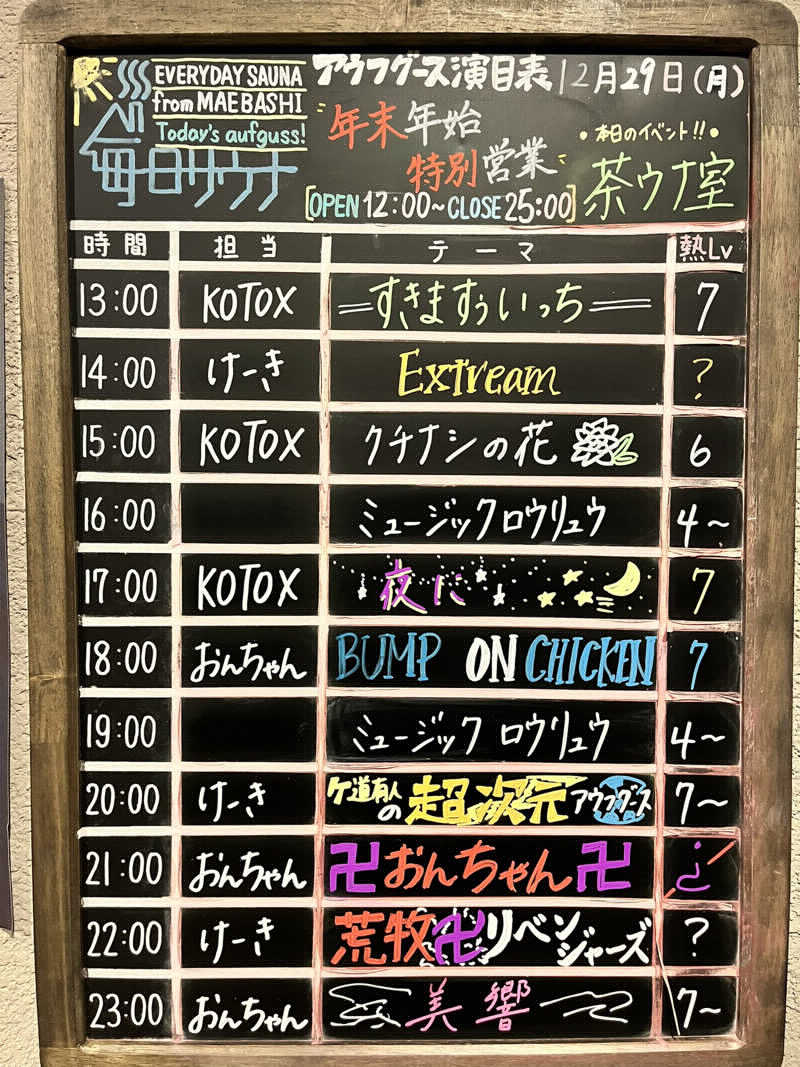 EVERYDAY SAUNA
from MAEBASHI
Today's aufguss!
毎日サウナ
アウフグース演目表 12月29日(月)
年末年始
特別営業
[OPEN 12:00~CLOSE 25:00]
•本日のイベント!!•
茶ウナ室
時間 担当 テーマ 熱Lv
13:00 KOTOX =すきますぅいっち= 7
14:00 けーき Extream ?
15:00 KOTOX クチナシの花 6
16:00 ミュージックロウリュウ 4~
17:00 KOTOX 夜に 7
18:00 おんちゃん BUMP ON CHICKEN 7
19:00 ミュージック ロウリュウ 4~
20:00 けーき ケ道有人の超次元アウフグース 7~
21:00 おんちゃん 卍おんちゃん卍 ¿
22:00 けーき 荒牧卍リベンジャーズ ?
23:00 おんちゃん 美響 7~